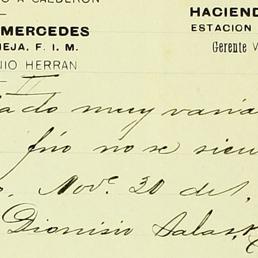 O A CALDERON
MERCEDES
EJA, F. I. M.
NIO HERRAN
HACIEND
ESTACION
Gerente V
II
ado muy varia
frio no se sien
Nov.e 30 de 1
Dionisio Salas